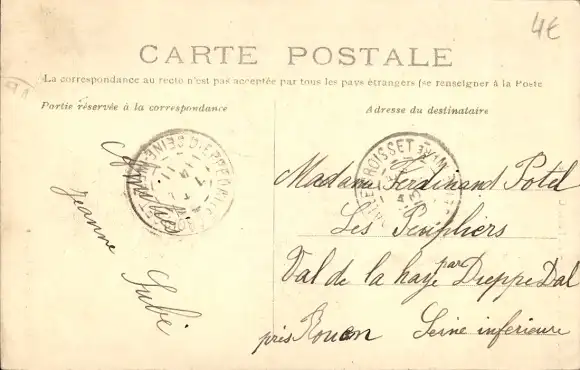 4€
CARTE POSTALE
La correspondance au recto n'est pas acceptée par tous les pays étrangers (se renseigner à la Poste
Partie réservée à la correspondance
Adresse du destinataire
Amitiés
Jeanne Subé
Madame Ferdinand Potel
Les Peupliers
Val de la haye par Dieppe Dal
près Rouen Seine inférieure